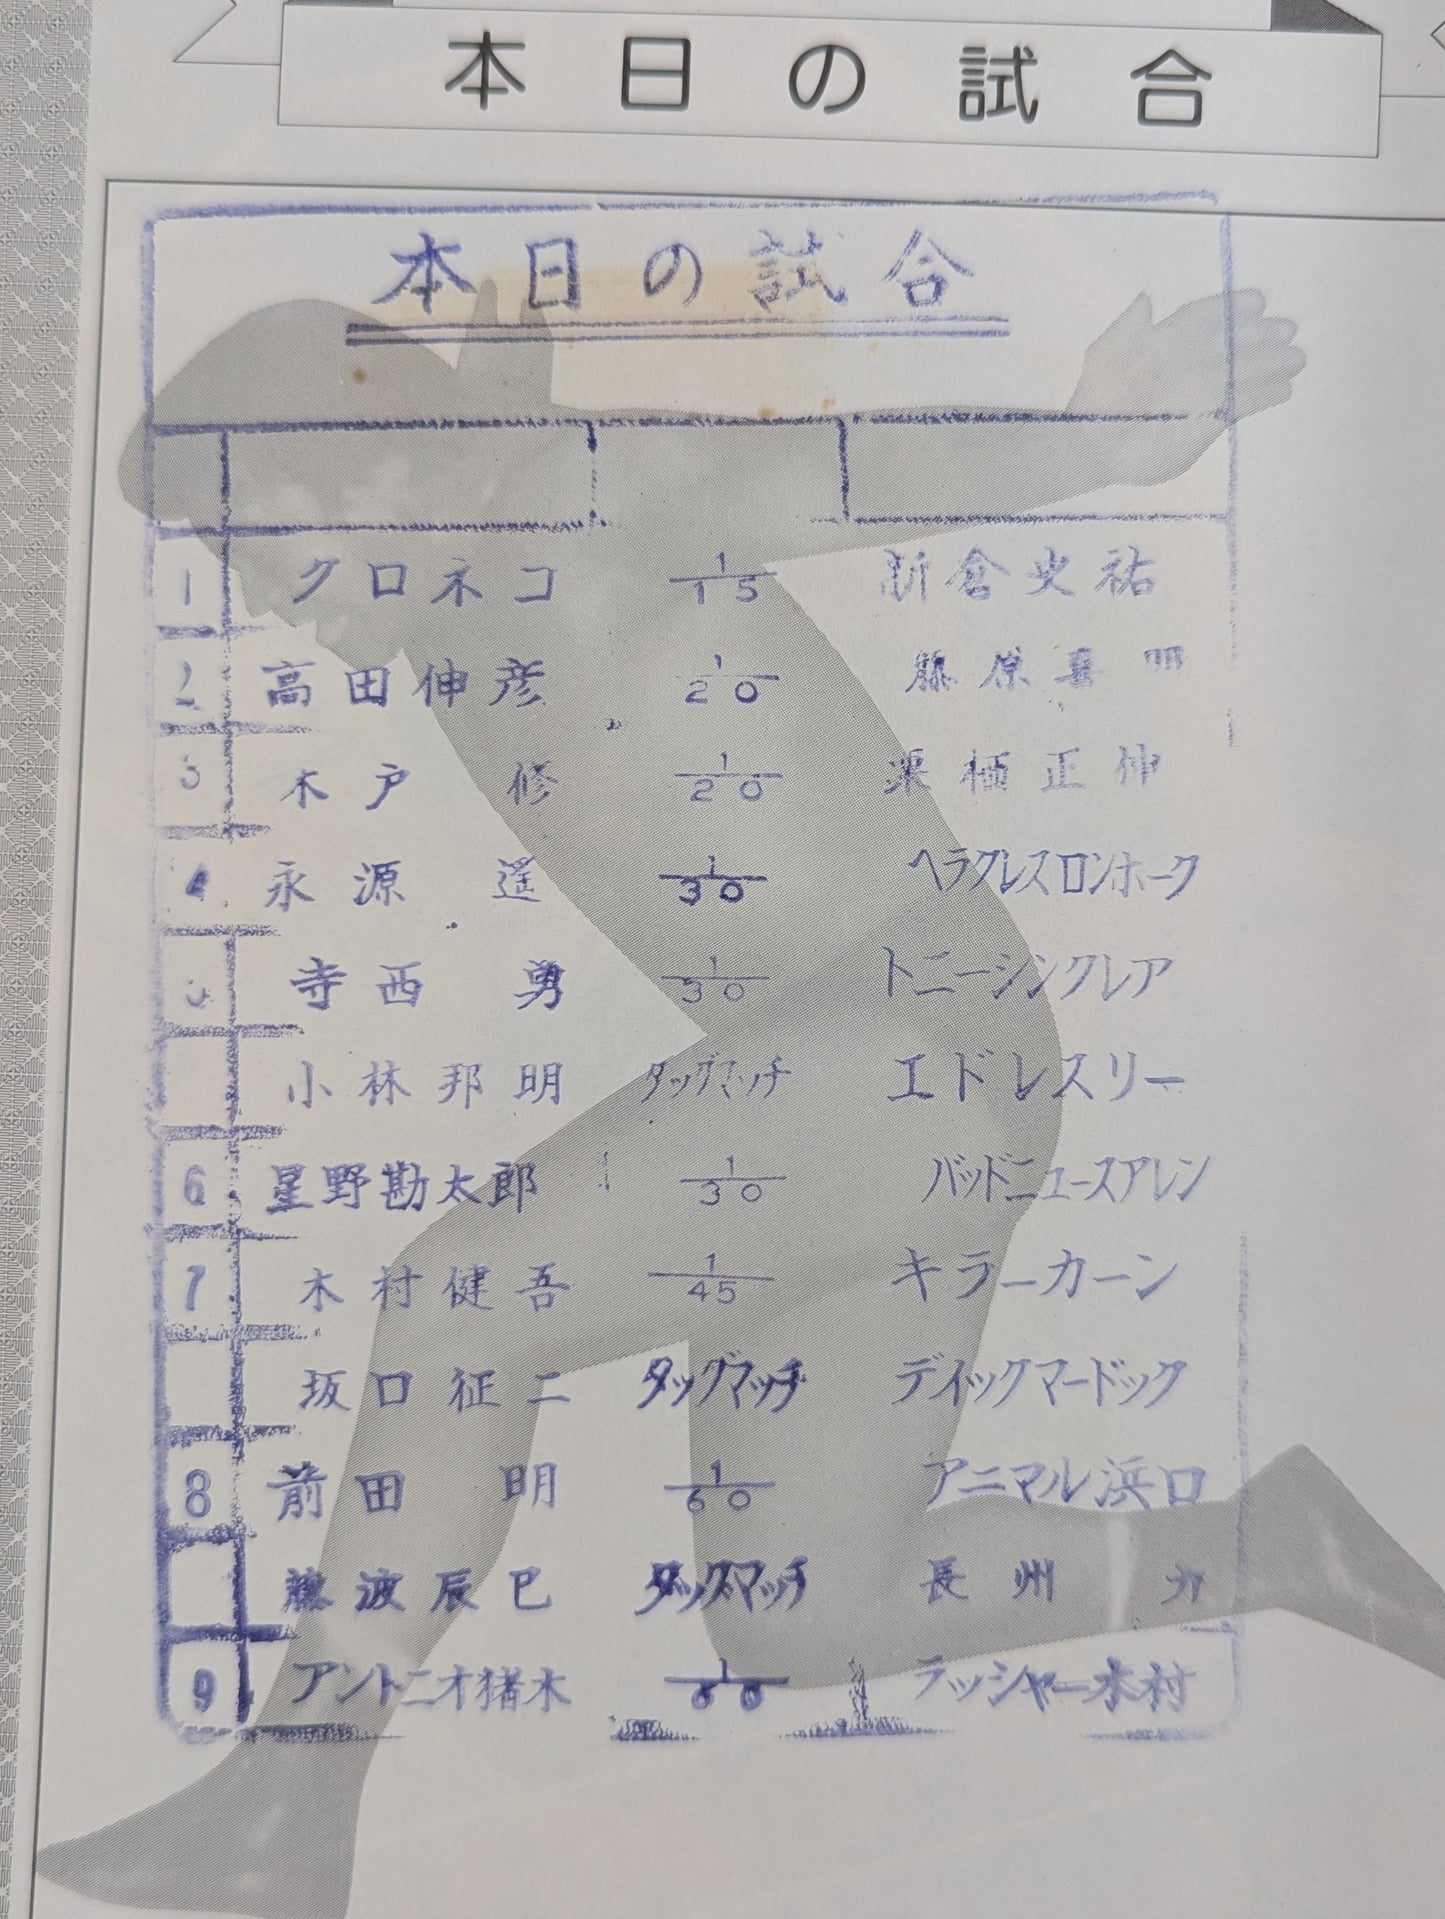 本日の試合
本日の試合
1 クロネコ 1/15 新倉史祐
2 高田伸彦 1/20 藤原喜明
3 木戸 修 1/20 栗栖正伸
4 永源 遥 1/30 ヘラクレスロンホーク
5 寺西 勇 1/30 トニーシンクレア
小林邦明 タッグマッチ エドレスリー
6 星野勘太郎 1/30 バッドニュースアレン
7 木村健吾 1/45 キラーカーン
坂口征二 タッグマッチ デイックマードック
8 前田 明 1/60 アニマル浜口
藤波辰巳 タッグマッチ 長州 力
9 アントニオ猪木 1/60 ラッシャー木村